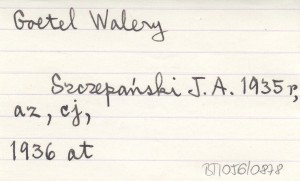 Goetel Walery
Szczepański J.A. 1935 r,
az, cj,
1936 at
BJ/056/0878